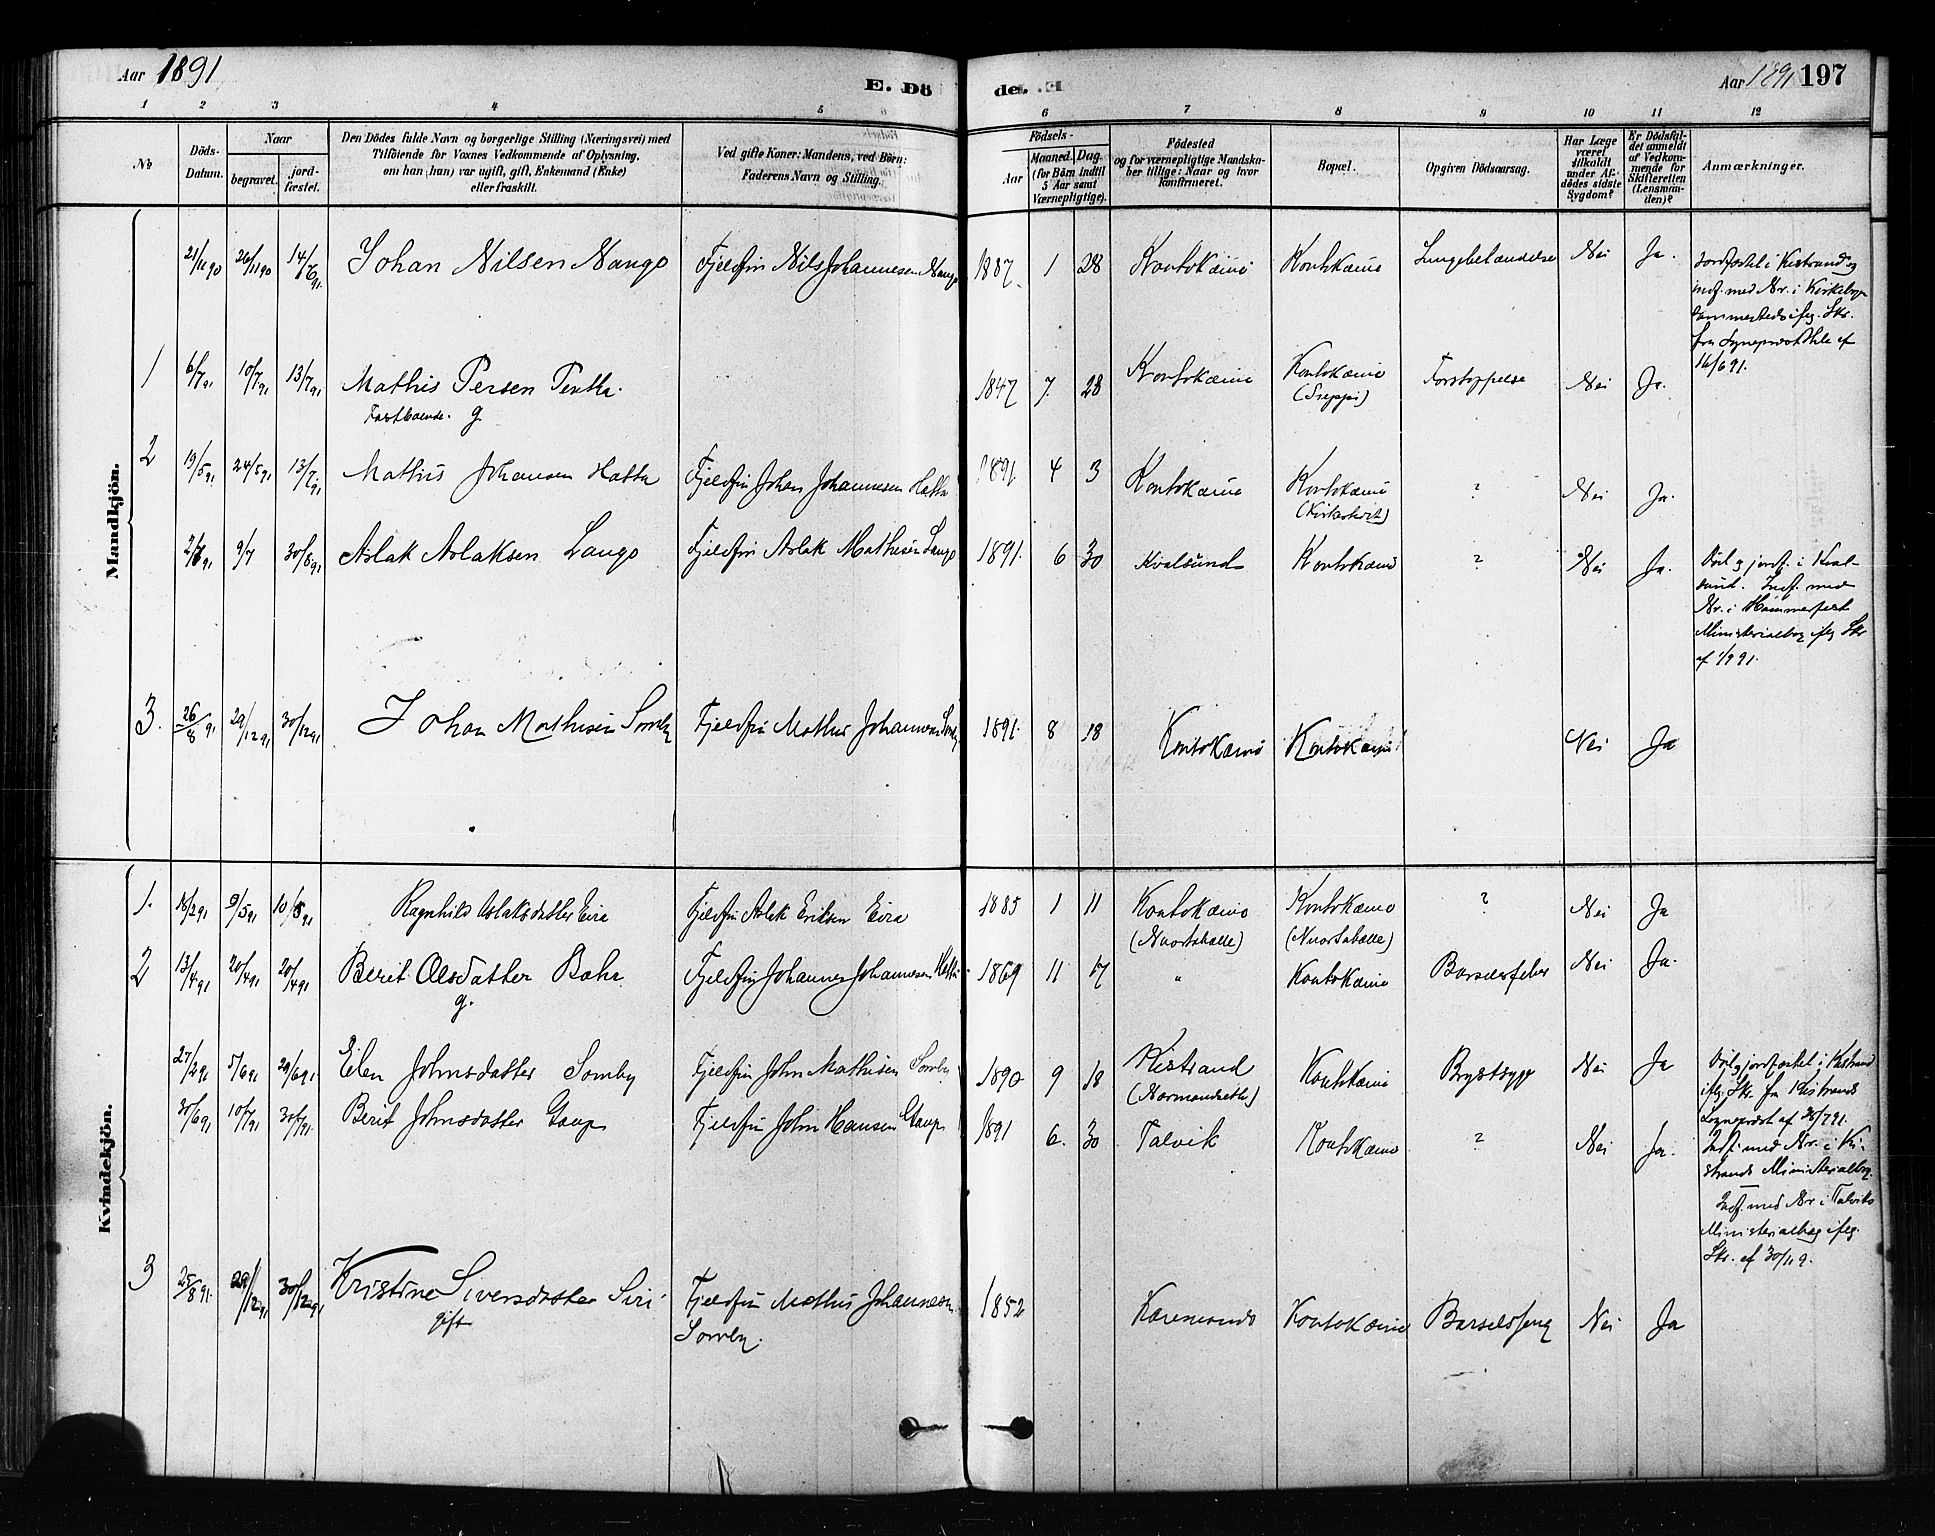 Aar 1891
E. Dö
de. E
Aar 1891 197
1 2 3 4 5 6 7 8 9 10 11 12
No
Döds-
Datum.
Naar
begravet.
jord-
fæstet.
Den Dödes fulde Navn og borgerlige Stilling (Næringsvei) med
Tilföiende for Voxnes Vedkommende af Oplysning,
om han (hun) var ugift, gift, Enkemand (Enke)
eller fraskilt.
Ved gifte Koner: Mandens, ved Börn:
Faderens Navn og Stilling.
Födsels-
Aar
Maaned. Dag.
(for Börn indtil
5 Aar samt
Værnepligtige).
Födested
og for værnepligtige Mandska-
ber tillige: Naar og hvor
konfirmeret.
Bopæl.
Opgiven Dödsaarsag.
Har Læge
været
tilkaldt
under Af-
dödes sidste
Sygdom?
Er Dödsfal-
det anmeldt
af Vedkom-
mende for
Skifteretten
(Lensman-
den)?
Anmærkninger.
Mandkjön.
21/11 90 26/11 90 14/6 91. Johan Nilsen Nango Fjeldfin Nils Johannesen Nango 1887 1 28 Koutokæino Koutokæino Lungebetændelse Nei Ja.
Jordfæstet i Kistrand og
indf. med Nr. i Kirkebog
sammesteds ifølg. Skr.
fra Sogneprest
16/6 91.
1 6/7 91 10/7 91 13/7 91 Mathis Persen Pentha. 1847 7. 28 Koutokæino Koutokæino Forstoppelse Nei Ja.
Fastboende. g.
2 19/5 91. 24/5 91 13/7 91 Mathis Johansen Hætta Fjeldfin Johan Johannesen Hætta 1891 4 3 Koutokæino Koutokæino ? Nei Ja.
(Kirkestedet)
2/7 91 9/7 30/8 91 Aslak Aslaksen Lango Fjeldfin Aslak Mathisen Lango 1891. 6 30 Kvalsund Koutokæino ? Nei Ja.
Död og jordf. i Kval-
sund. Indf. med
Nr. i Hammerfest
Ministerialbog ifølg Skr
af 1/9 91.
3. 26/8 91 29/12 91 30/12 91 Johan Mathisen Somby Fjeldfin Mathis Johannesen Somby. 1891. 8 18 Koutokæino Koutokæino Nei Ja
Kvindekjön.
1. 18/2 91 9/5 91 10/5 91 Ragnhild Aslaksdatter Eira Fjeldfin Aslak Eriksen Eira 1885 1 11 Koutokæino Koutokæino ? Nei Ja
(Nuortabelle) (Nuortabelle)
2 13/4 91 20/4 91 20/4 91 Berit Olsdatter Bahr Fjeldfin Johannes Johannesen Hætta 1869 11 17 " Koutokæino Barselfeber Nei Ja.
g.
27/2 91 5/6 91 29/6 91 Elen Johnsdatter Somby Fjeldfin John Mathisen Somby 1890 9 18 Kistrand Koutokæino Brystsyge Nei Ja
Död og jordfæstet i Kistrand
ifølg. Skr. fra Kistrands
Sogneprest af 28/7 91.
Indf. med Nr. i Ki-
strands Ministerialbog.
30/6 91 10/7 91 30/7 91. Berit Johnsdatter Gaup Fjeldfin John Hansen Gaup 1891 6. 30 Talvik Koutokæino ? Nei Ja.
Indf. med Nr. i Talviks
Ministerialbog ifølg.
Skr. af 30/11 9.
3 25/8 91. 29/12 91 30/12 91 Kristine Siversdatter Siri Fjeldfin Mathis Johannesen 1852 Karesuando Koutokæino Barselseng Nei Ja
gift Somby.